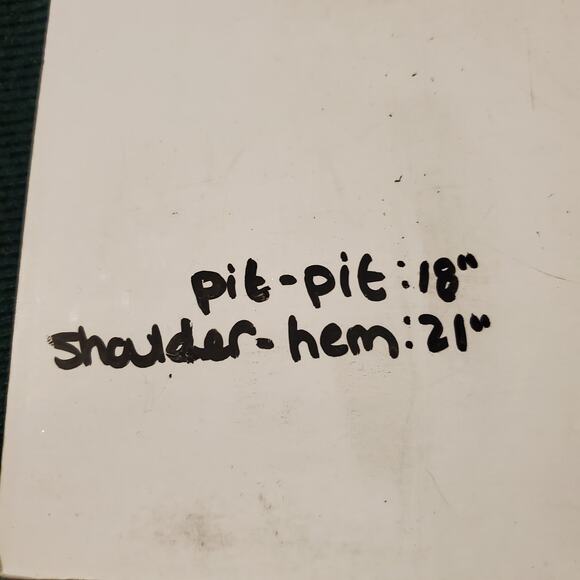 pit-pit:18"
shoulder-hem:21"